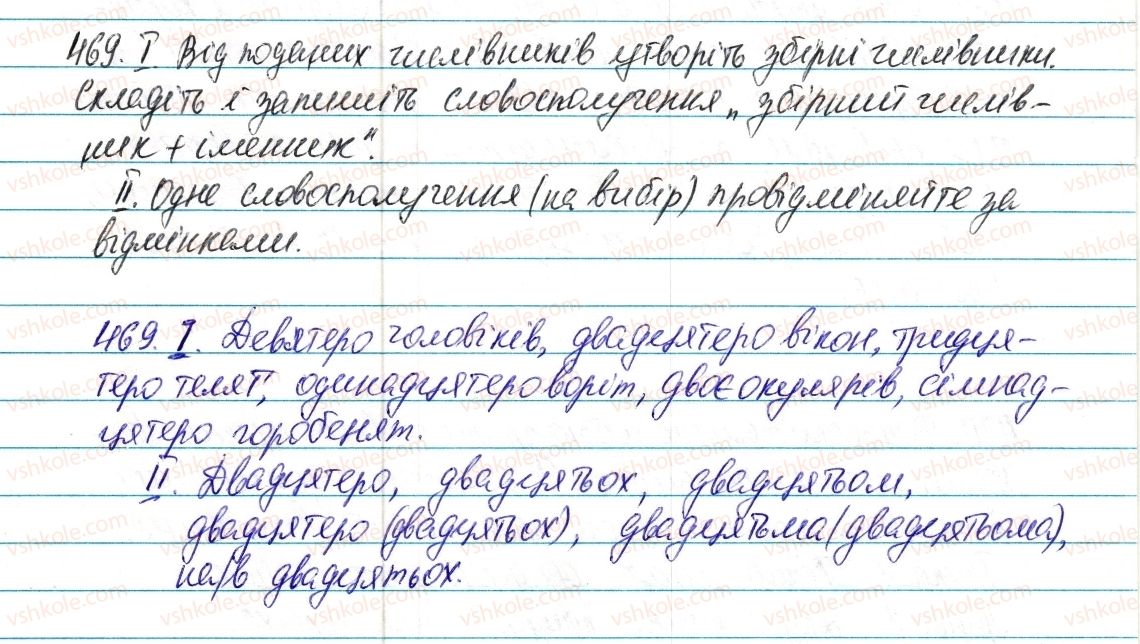 469. I. Від поданих числівників утворіть збірні числівники.
Складіть і запишіть словосполучення „збірний числів-
ник + іменник".
II. Одне словосполучення (на вибір) провідміняйте за
відмінками.
469. I. Дев'ятеро чоловіків, двадцятеро вікон, тридця-
теро телят, одинадцятеро воріт, двоє окулярів, сімнад-
цятеро горобенят.
II. Двадцятеро, двадцятьох, двадцятьом,
двадцятеро (двадцятьох), двадцятьма (двадцятьома),
на/в двадцятьох.